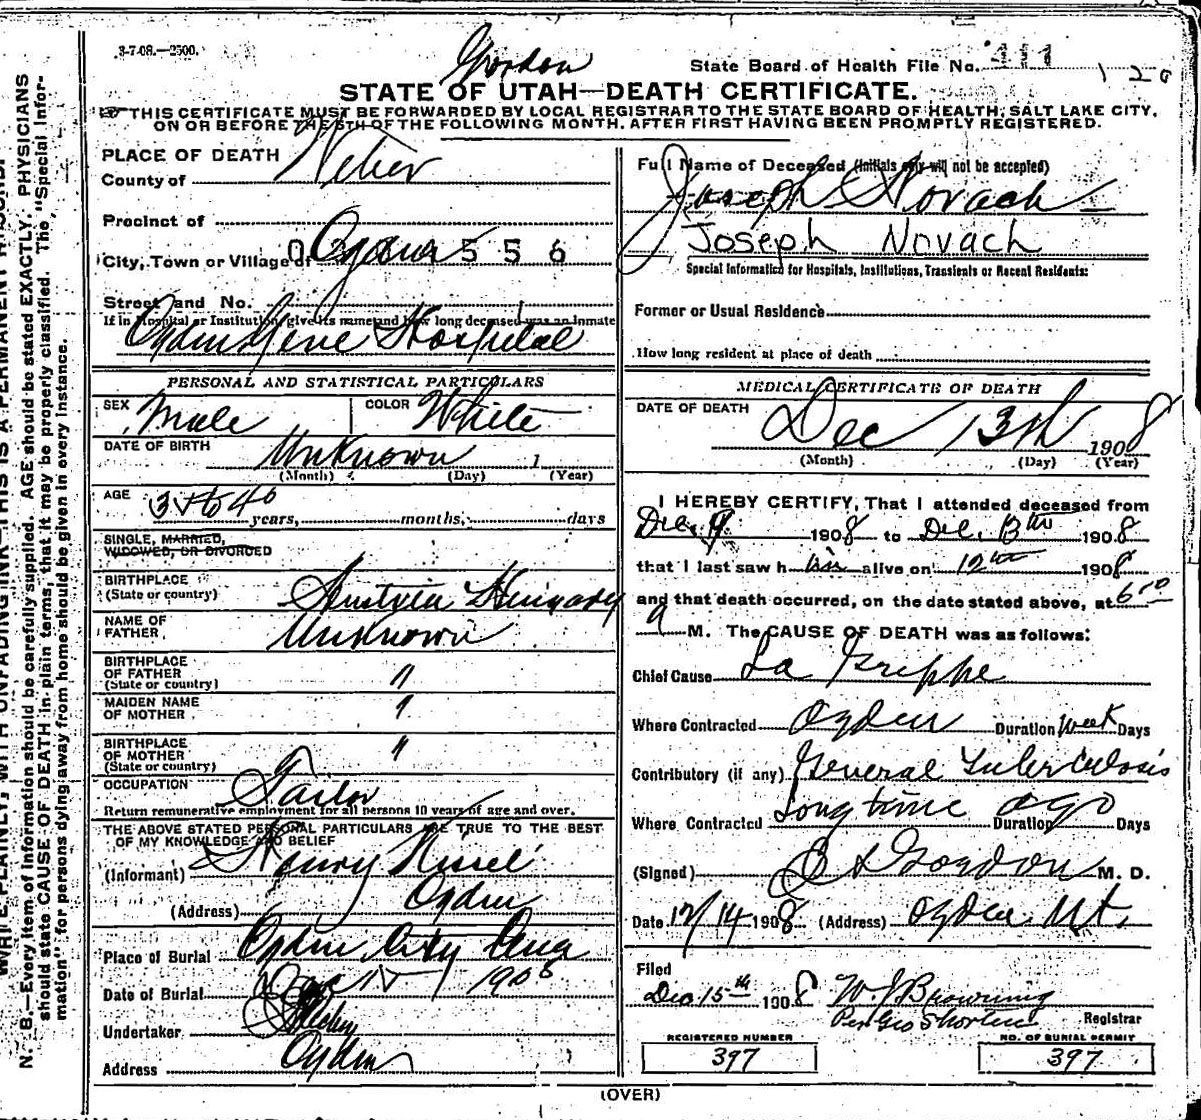 3-7-08.—2500.
Gordon
State Board of Health File No. 411
1 2 0
STATE OF UTAH—DEATH CERTIFICATE.
THIS CERTIFICATE MUST BE FORWARDED BY LOCAL REGISTRAR TO THE STATE BOARD OF HEALTH, SALT LAKE CITY,
ON OR BEFORE THE 5TH OF THE FOLLOWING MONTH, AFTER FIRST HAVING BEEN PROMPTLY REGISTERED.
PLACE OF DEATH
County of Weber
Precinct of
City, Town or Village of Ogden
0 556
Street and No.
If in Hospital or Institution, give its name and how long deceased was an inmate
Ogden Gene Hospital
PERSONAL AND STATISTICAL PARTICULARS
SEX Male COLOR White
DATE OF BIRTH Unknown 1
(Month) (Day) (Year)
AGE 38 to 40 years, months, days
SINGLE, MARRIED,
WIDOWED, OR DIVORCED
BIRTHPLACE
(State or country) Austria Hungary
NAME OF
FATHER, Unknown
BIRTHPLACE
OF FATHER "
(State or country)
MAIDEN NAME
OF MOTHER "
BIRTHPLACE
OF MOTHER "
(State or country)
OCCUPATION Tailor
Return remunerative employment for all persons 10 years of age and over.
THE ABOVE STATED PERSONAL PARTICULARS ARE TRUE TO THE BEST
OF MY KNOWLEDGE AND BELIEF
(Informant) Henry
(Address) Ogden
Place of Burial Ogden City
Date of Burial Dec 1908
Undertaker
Address Ogden
Full Name of Deceased (Initials only will not be accepted)
Joseph Novach
Joseph Novach
Special Information for Hospitals, Institutions, Transients or Recent Residents:
Former or Usual Residence
How long resident at place of death
MEDICAL CERTIFICATE OF DEATH
DATE OF DEATH
Dec 13th 1908
(Month) (Day) (Year)
I HEREBY CERTIFY, That I attended deceased from
Dec. 9 1908 to Dec. 13th 1908
that I last saw h im alive on 12th 1908
and that death occurred, on the date stated above, at 6 00
a M. The CAUSE OF DEATH was as follows:
Chief Cause La Grippe
Where Contracted Ogden Duration Week Days
Contributory (if any) General Tuberculosis
Where Contracted Long time ago Duration Days
(Signed) Gordon M. D.
Date 12/14 1908 (Address) Ogden Ut.
Filed
Dec 15th 1908 W. J. Browning
Per Geo Shorten Registrar
REGISTERED NUMBER
397
NO. OF BURIAL PERMIT
397
(OVER)
WRITE PLAINLY, WITH UNFADING INK—THIS IS A PERMANENT RECORD.
N. B.—Every item of information should be carefully supplied. AGE should be stated EXACTLY. PHYSICIANS
should state CAUSE OF DEATH in plain terms, that it may be properly classified. The "Special Infor-
mation" for persons dying away from home should be given in every instance.